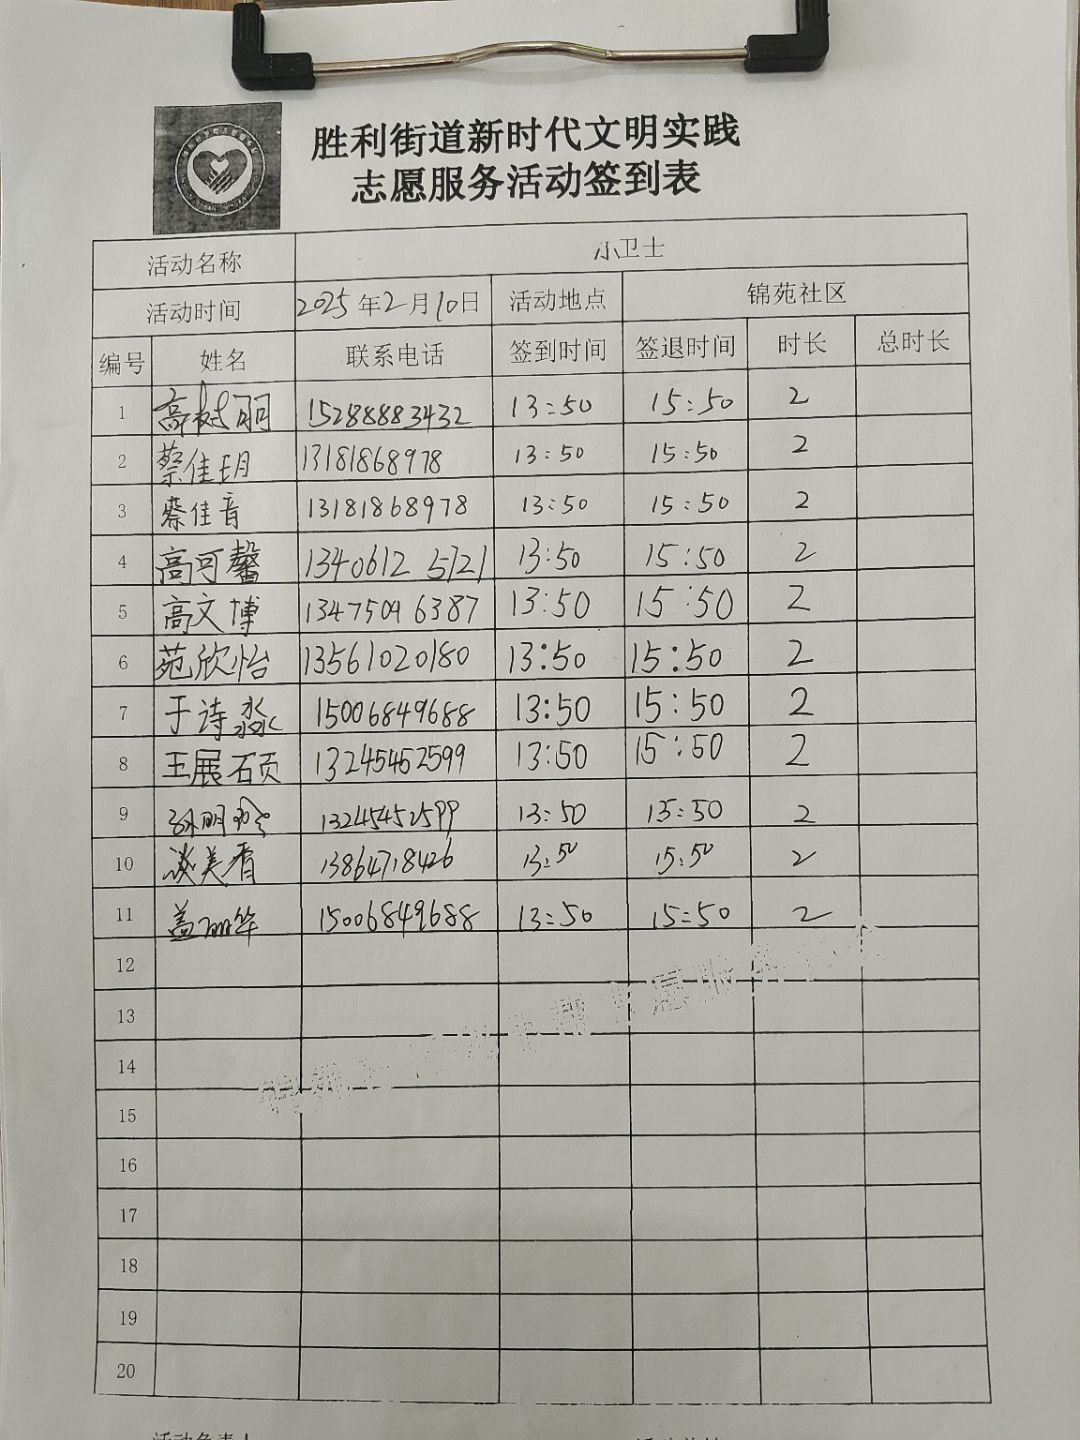 胜利街道新时代文明实践
志愿服务活动签到表
活动名称 小卫士
活动时间 2025年2月10日 活动地点 锦苑社区
编号 姓名 联系电话 签到时间 签退时间 时长 总时长
1 高树丽 15288883432 13:50 15:50 2
2 蔡佳玥 13181868978 13:50 15:50 2
3 蔡佳音 13181868978 13:50 15:50 2
4 高可馨 13406125721 13:50 15:50 2
5 高文博 13475096387 13:50 15:50 2
6 苑欣怡 13561020180 13:50 15:50 2
7 于诗淼 15006849688 13:50 15:50 2
8 王展硕 13245452599 13:50 15:50 2
9 13245452599 13:50 15:50 2
10 谈美香 13864718426 13:50 15:50 2
11 盖丽华 15006849688 13:50 15:50 2
12
13
14
15
16
17
18
19
20